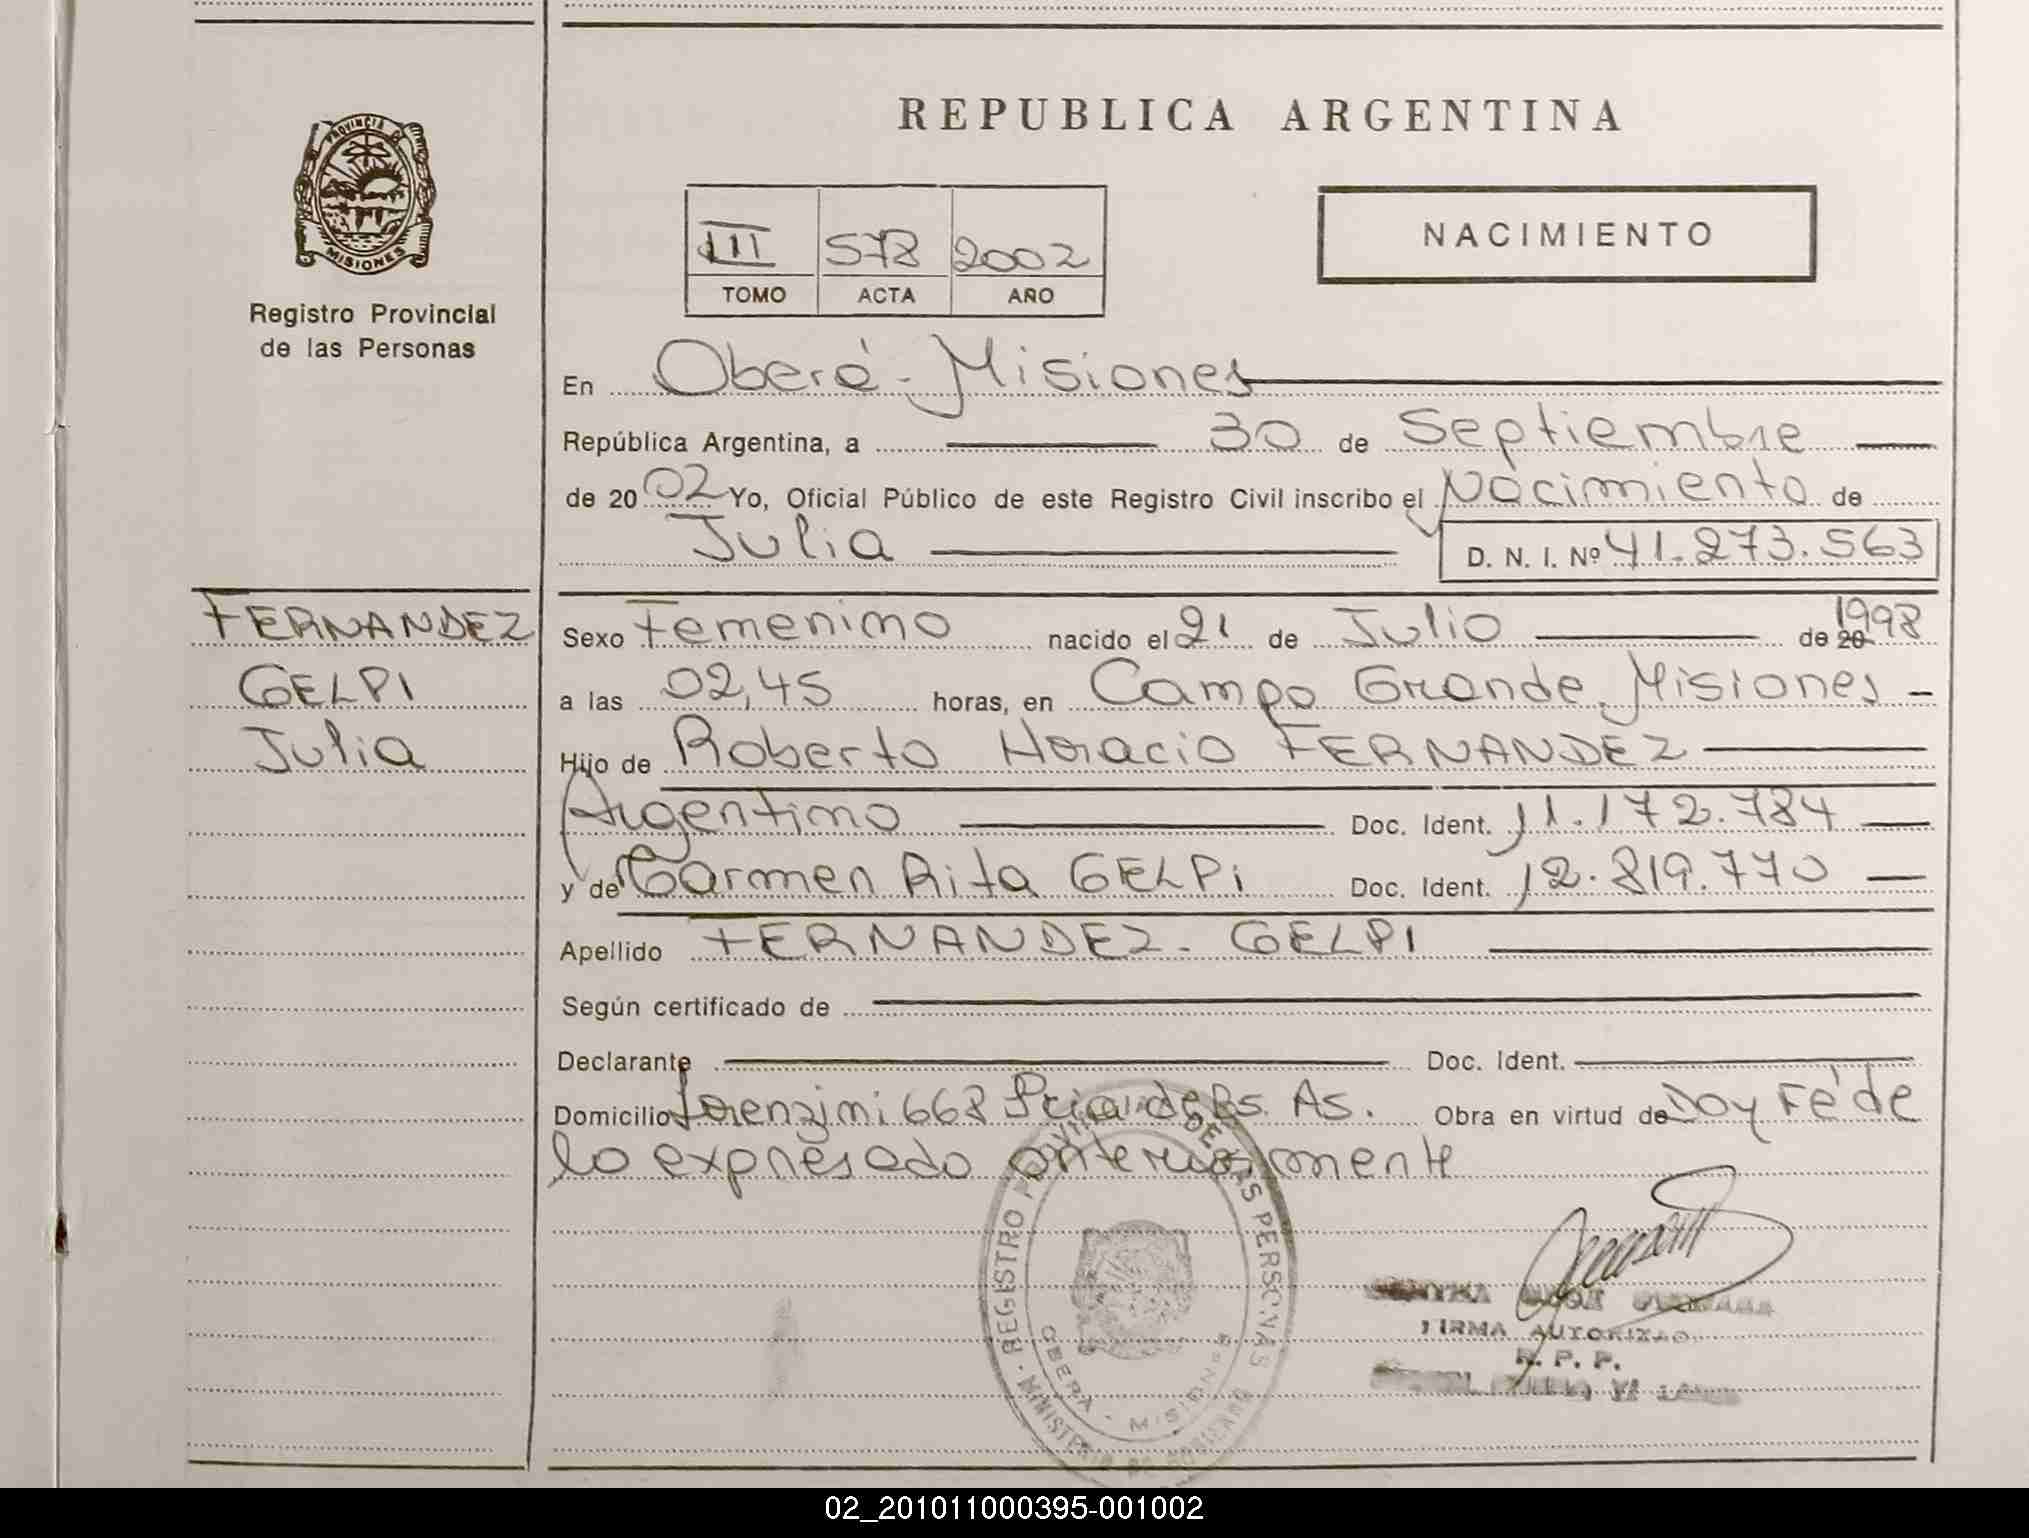 REPUBLICA ARGENTINA
PROVINCIA DE MISIONES
Registro Provincial
de las Personas
III 578 2002
TOMO ACTA AÑO
NACIMIENTO
En Oberá - Misiones
República Argentina, a 30 de Septiembre
de 2002 Yo, Oficial Público de este Registro Civil inscribo el Nacimiento de
Julia
D. N. I. Nº 41.273.563
FERNANDEZ
GELPI
Julia
Sexo Femenino nacido el 21 de Julio de 20 1998
a las 02,45 horas, en Campo Grande, Misiones
Hijo de Roberto Horacio FERNANDEZ
Argentino Doc. Ident. 11.172.784
y de Carmen Rita GELPI Doc. Ident. 12.819.770
Apellido FERNANDEZ - GELPI
Según certificado de
Declarante Doc. Ident.
Domicilio Lorenzini 668 Pcia de Bs. As. Obra en virtud de Doy Fé de
lo expresado anteriormente
REGISTRO PROVINCIAL DE LAS PERSONAS
MINISTERIO DE GOBIERNO
OBERA - MISIONES
FIRMA AUTORIZAD
R. P. P.
02_201011000395-001002